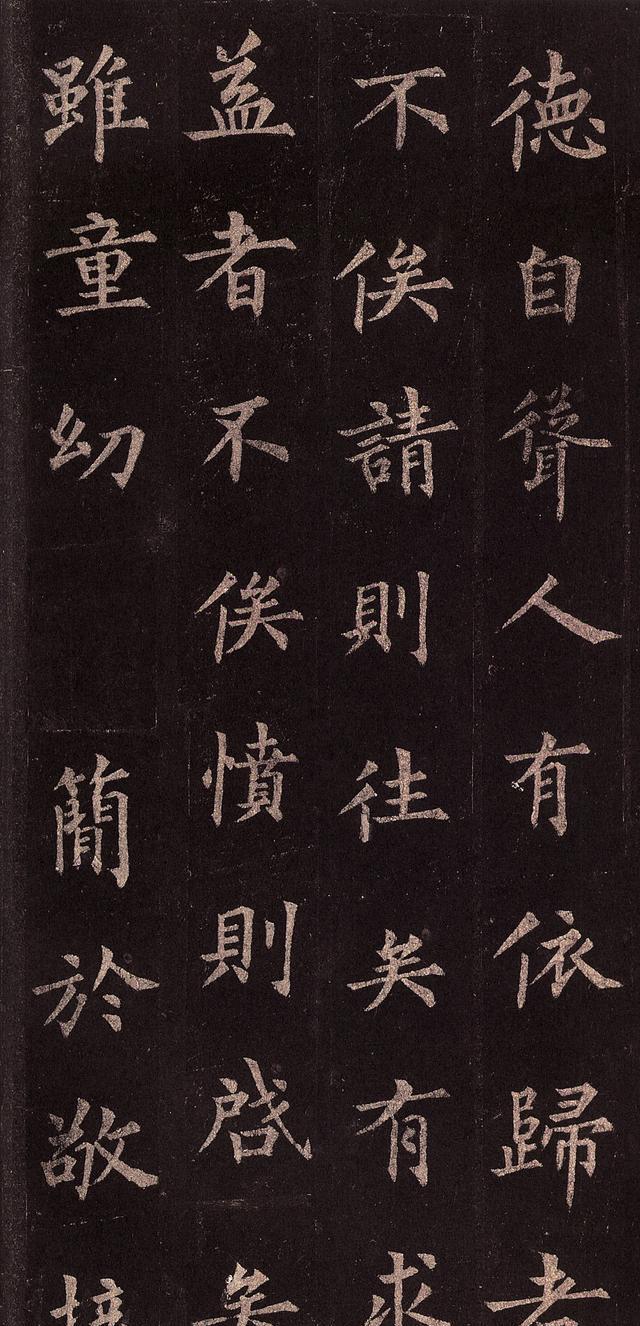 德自聳人有依歸者
不俟請則往矣有求
益者不俟憤則啓矣
雖童幼 簡於敬